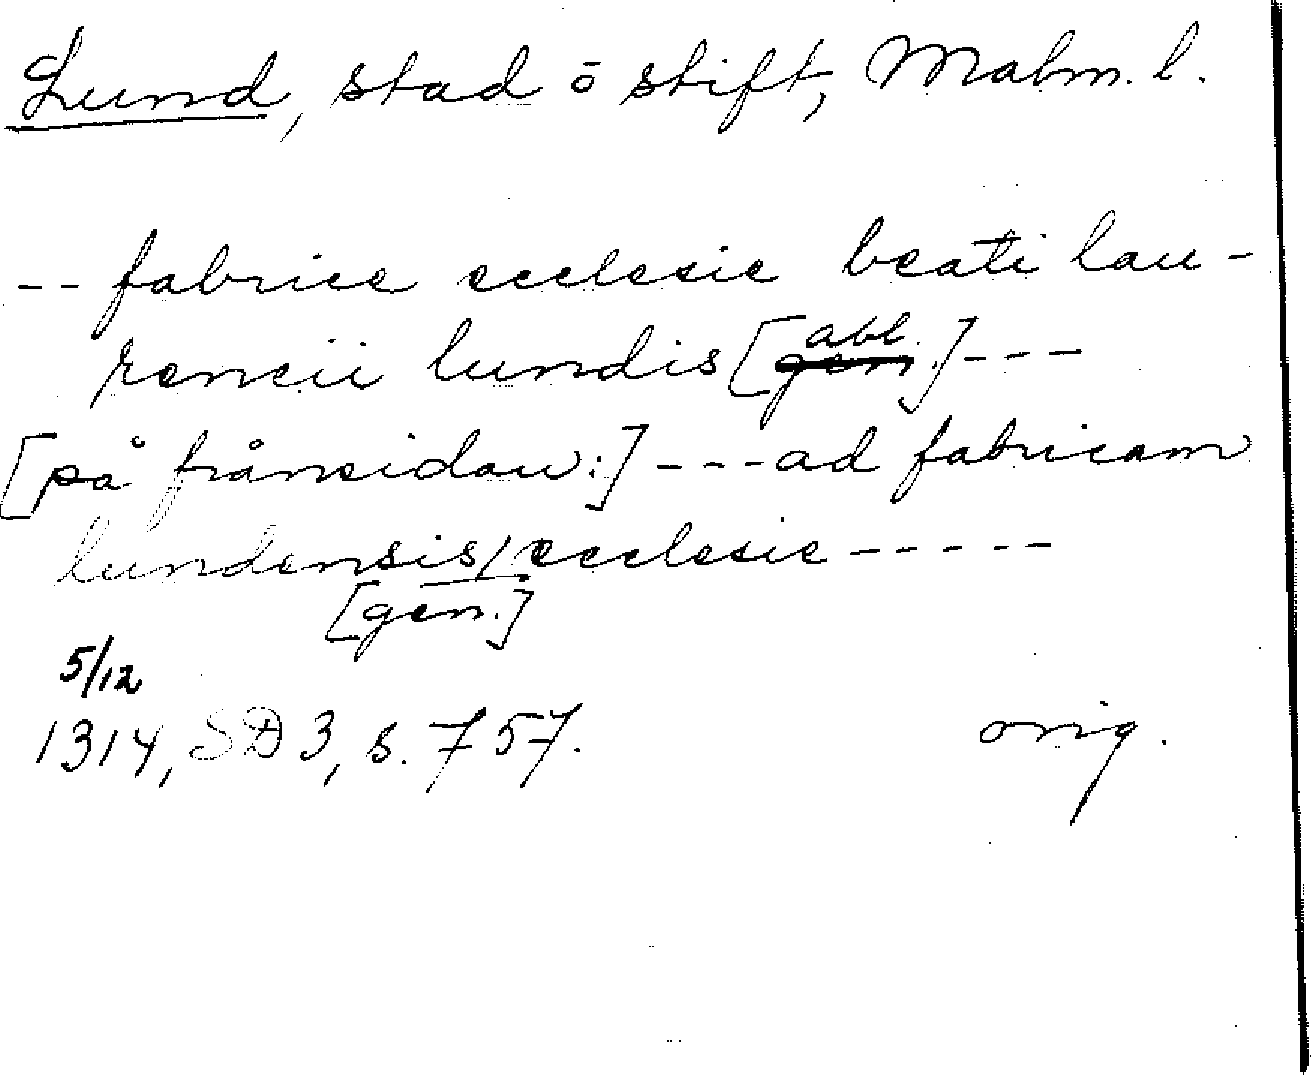 Lund, stad o stift, Malm. l.
-- fabrice ecclesie beati lau-
rencii lundis [abl.] ---
[på frånsidan:] --- ad fabricam
lundensis/ecclesie -----
[gen.]
5/12
1314, SD 3, s. 757. orig.